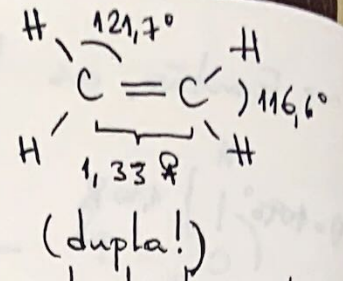 H 121,7° H
C = C 116,6°
H H
1,33 Å
(dupla!)